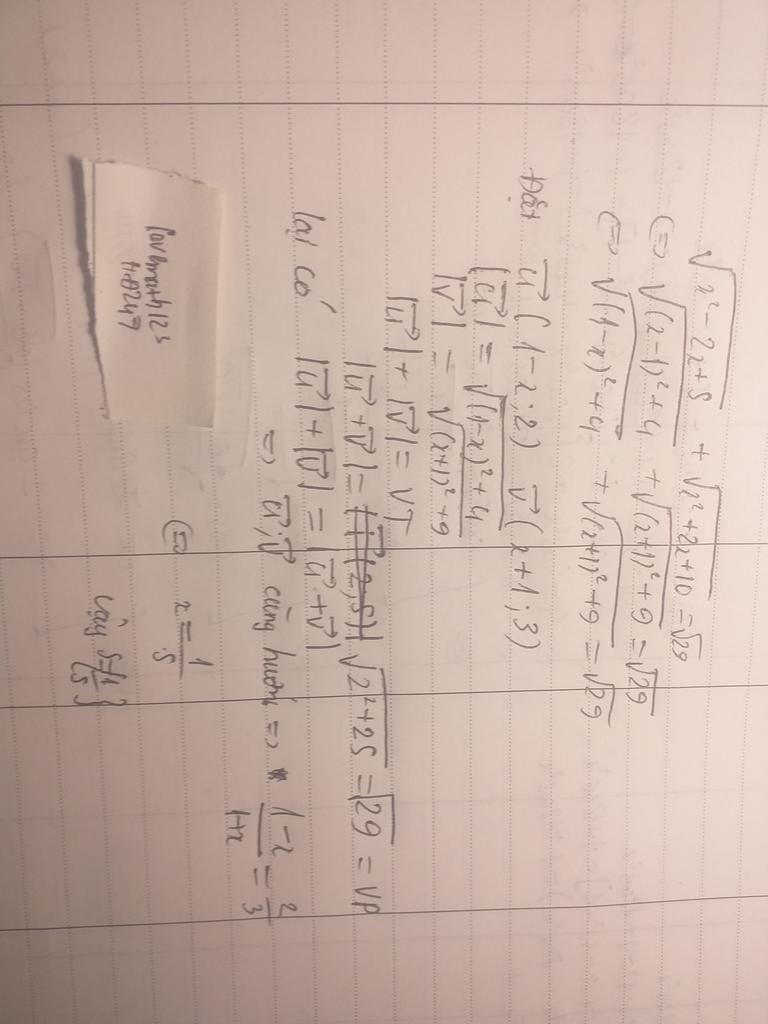 √(x² - 2x + 5) + √(x² + 2x + 10) = √29
⇔ √((x-1)² + 4) + √((x+1)² + 9) = √29
⇔ √((1-x)² + 4) + √((x+1)² + 9) = √29
Đặt u⃗ (1-x; 2) v⃗ (x+1; 3)
|u⃗| = √((1-x)² + 4)
|v⃗| = √((x+1)² + 9)
|u⃗| + |v⃗| = VT
|u⃗ + v⃗| = √(2² + 25) = √29 = VP
lại có |u⃗| + |v⃗| = |u⃗ + v⃗|
⇒ u⃗, v⃗ cùng hướng ⇒ (1-x)/(1+x) = 2/3
⇔ x = 1/5
Vậy S = {1/5}